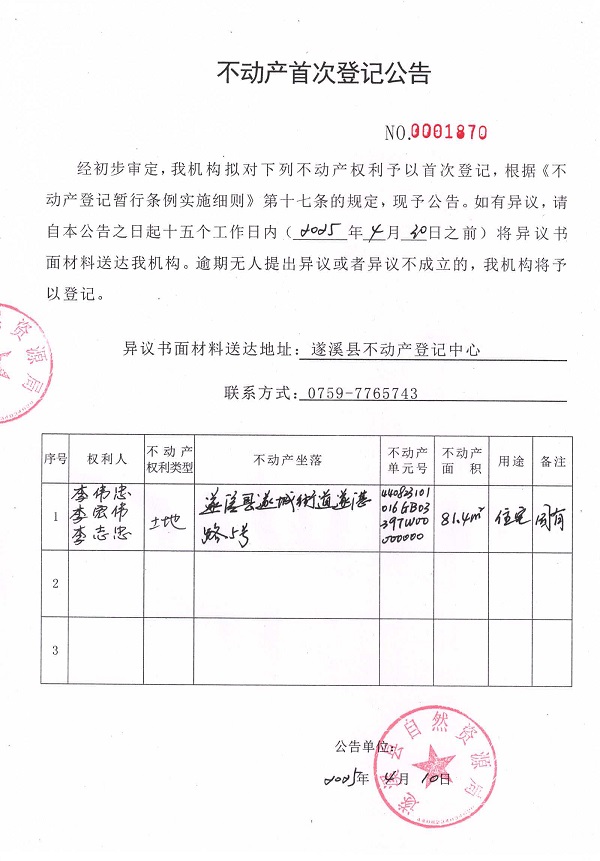 不动产首次登记公告
NO.0001870
经初步审定，我机构拟对下列不动产权利予以首次登记，根据《不
动产登记暂行条例实施细则》第十七条的规定，现予公告。如有异议，请
自本公告之日起十五个工作日内（2025年4月30日之前）将异议书
面材料送达我机构。逾期无人提出异议或者异议不成立的，我机构将予
以登记。
异议书面材料送达地址：遂溪县不动产登记中心
联系方式：0759-7765743
序号 权利人 不动产权利类型 不动产坐落 不动产单元号 不动产面积 用途 备注
1 李伟忠 李宏伟 李志忠 土地 遂溪县遂城街道遂港路5号 440823101016GB03397W00000000 81.4m² 住宅 国有
2
3
公告单位：
2025年4月10日
遂溪县自然资源局
资源局